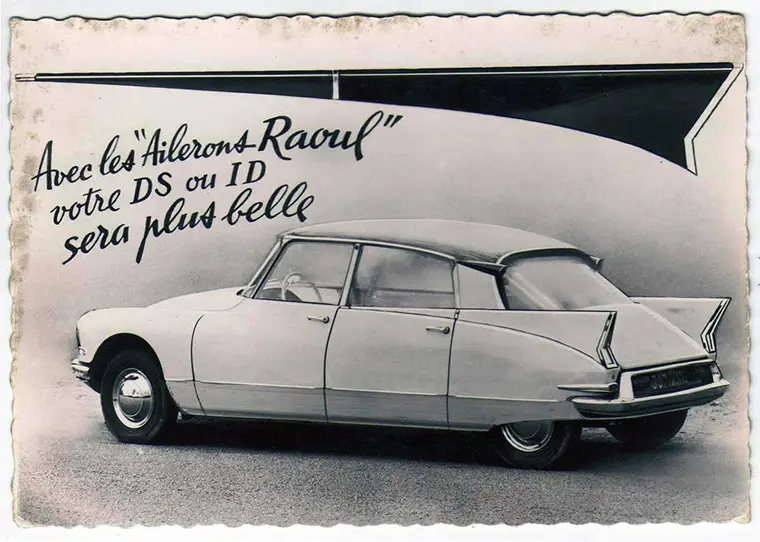 Avec les "Ailerons Raoul"
votre DS ou ID
sera plus belle